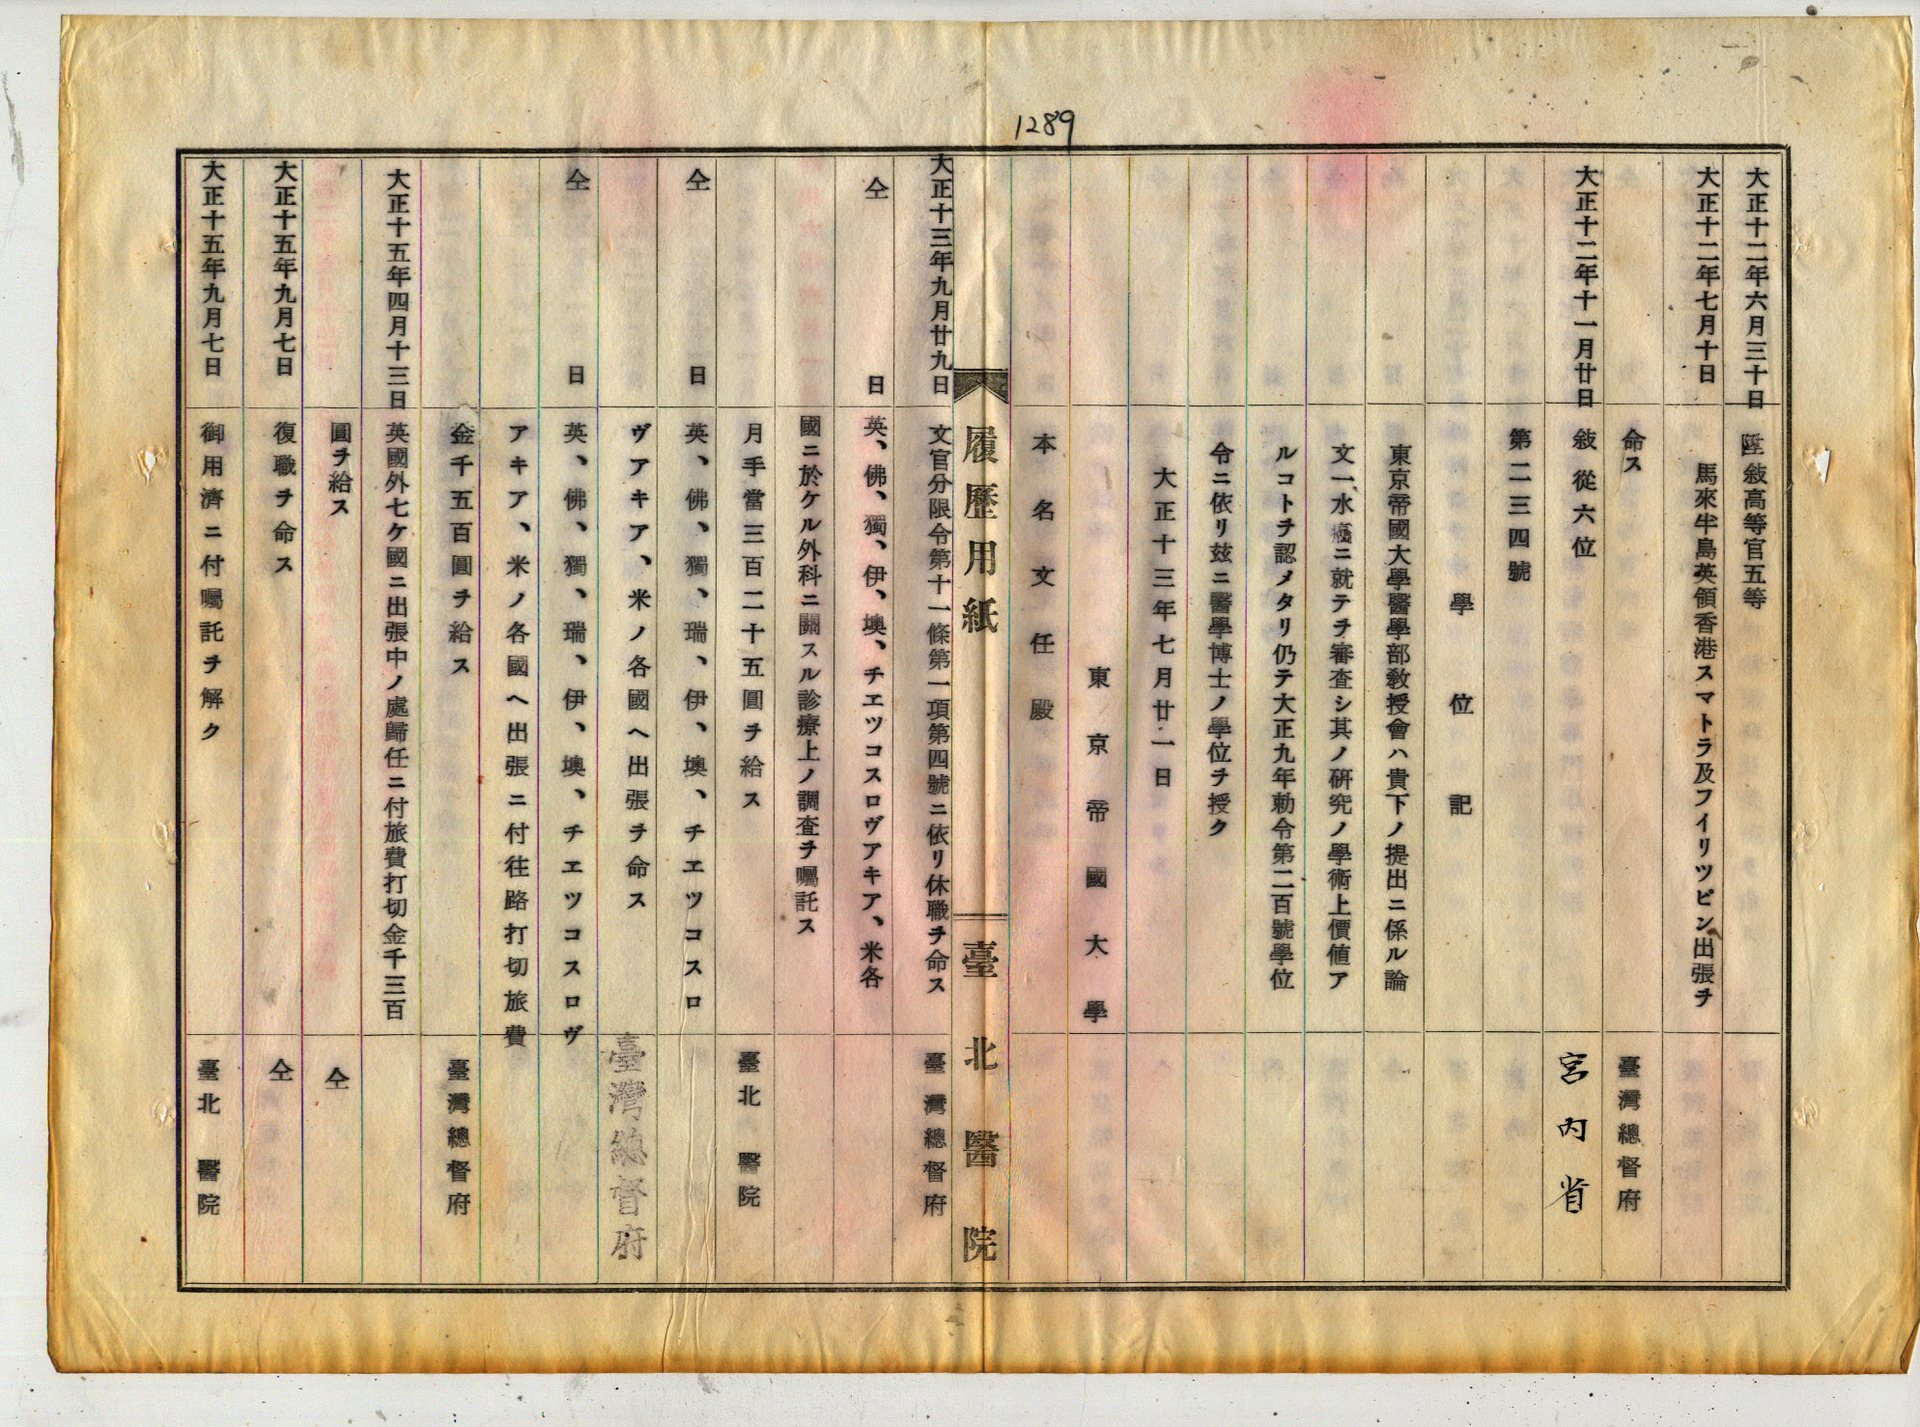 1289
大正十二年六月三十日 陞敍高等官五等
大正十二年七月十日 馬來半島英領香港スマトラ及フイリツピン出張ヲ
命ス 臺灣總督府
大正十二年十一月廿日 敍從六位 宮内省
第二三四號
學位記
東京帝國大學醫學部敎授會ハ貴下ノ提出ニ係ル論
文一、水癌ニ就テヲ審査シ其ノ硏究ノ學術上價値ア
ルコトヲ認メタリ仍テ大正九年勅令第二百號學位
令ニ依リ玆ニ醫學博士ノ學位ヲ授ク
大正十三年七月廿一日
東京帝國大學
本名文任殿
履歷用紙 臺北醫院
大正十三年九月廿九日 文官分限令第十一條第一項第四號ニ依リ休職ヲ命ス 臺灣總督府
仝 日 英、佛、獨、伊、墺、チエツコスロヴアキア、米各
國ニ於ケル外科ニ關スル診療上ノ調査ヲ囑託ス
月手當三百二十五圓ヲ給ス 臺北醫院
仝 日 英、佛、獨、瑞、伊、墺、チエツコスロ
ヴアキア、米ノ各國ヘ出張ヲ命ス 臺灣總督府
仝 日 英、佛、獨、瑞、伊、墺、チエツコスロヴ
アキア、米ノ各國ヘ出張ニ付往路打切旅費
金千五百圓ヲ給ス 臺灣總督府
大正十五年四月十三日 英國外七ケ國ニ出張中ノ處歸任ニ付旅費打切金千三百
圓ヲ給ス 仝
大正十五年九月七日 復職ヲ命ス 仝
大正十五年九月七日 御用濟ニ付囑託ヲ解ク 臺北醫院